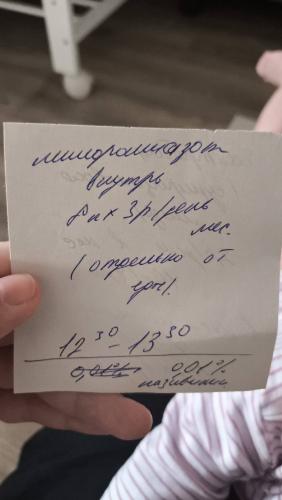 лимфомиазот
внутрь
8к х 3р/день
мес.
(отдельно от
12³⁰ - 13³⁰
0,01% 0,01%
називин